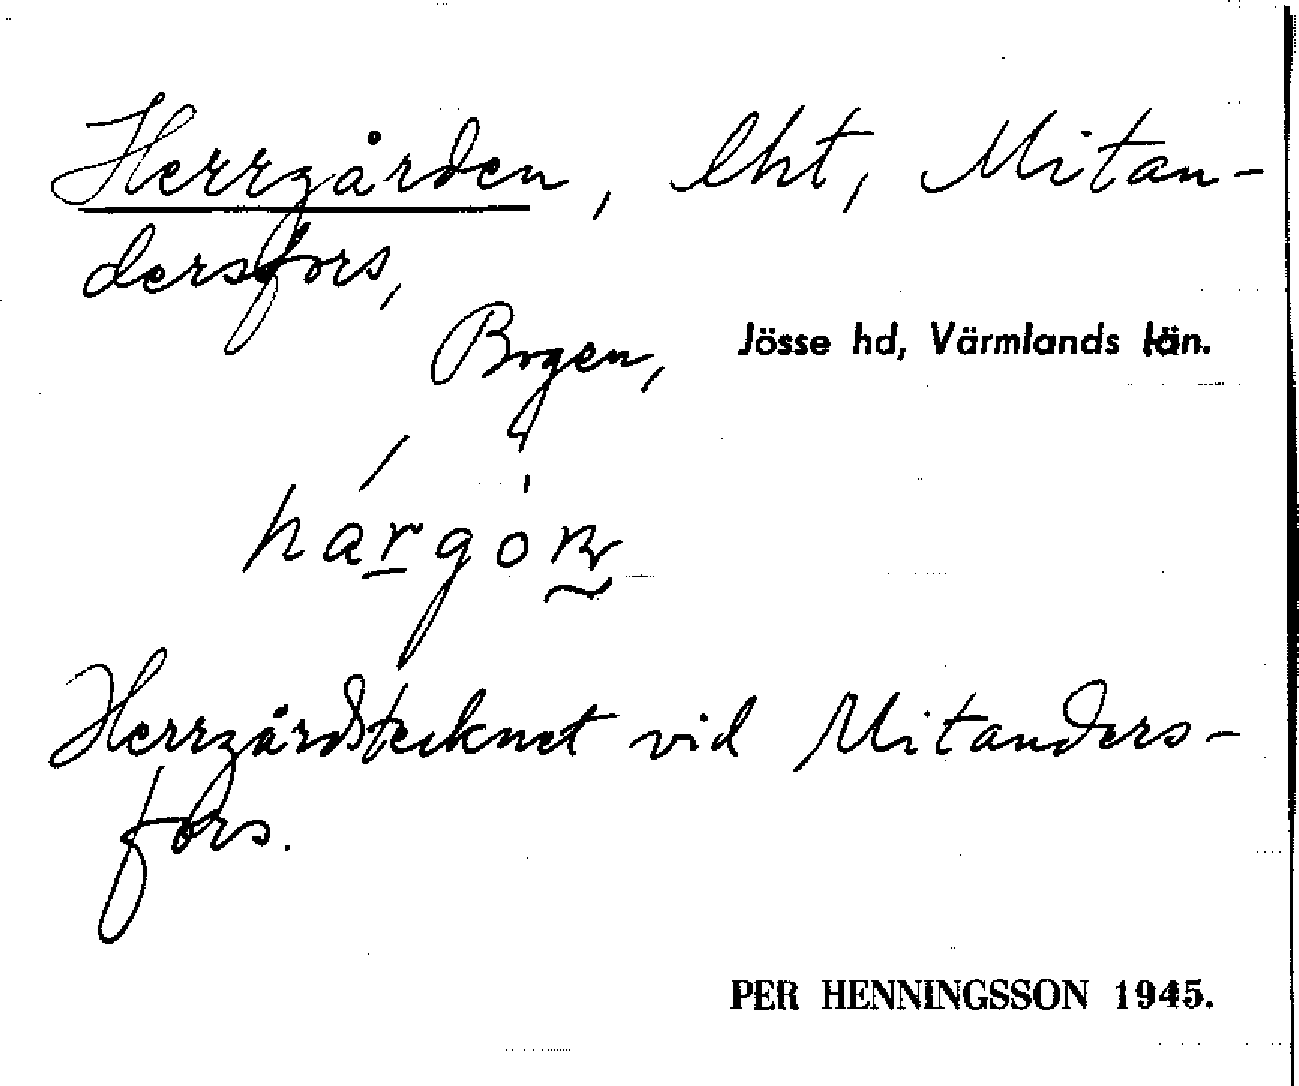 Herrgården, lht, Mitan-
dersfors,
Bogen, Jösse hd, Värmlands län.
Herrgårdstecknet vid Mitanders-
fors.
PER HENNINGSSON 1945.